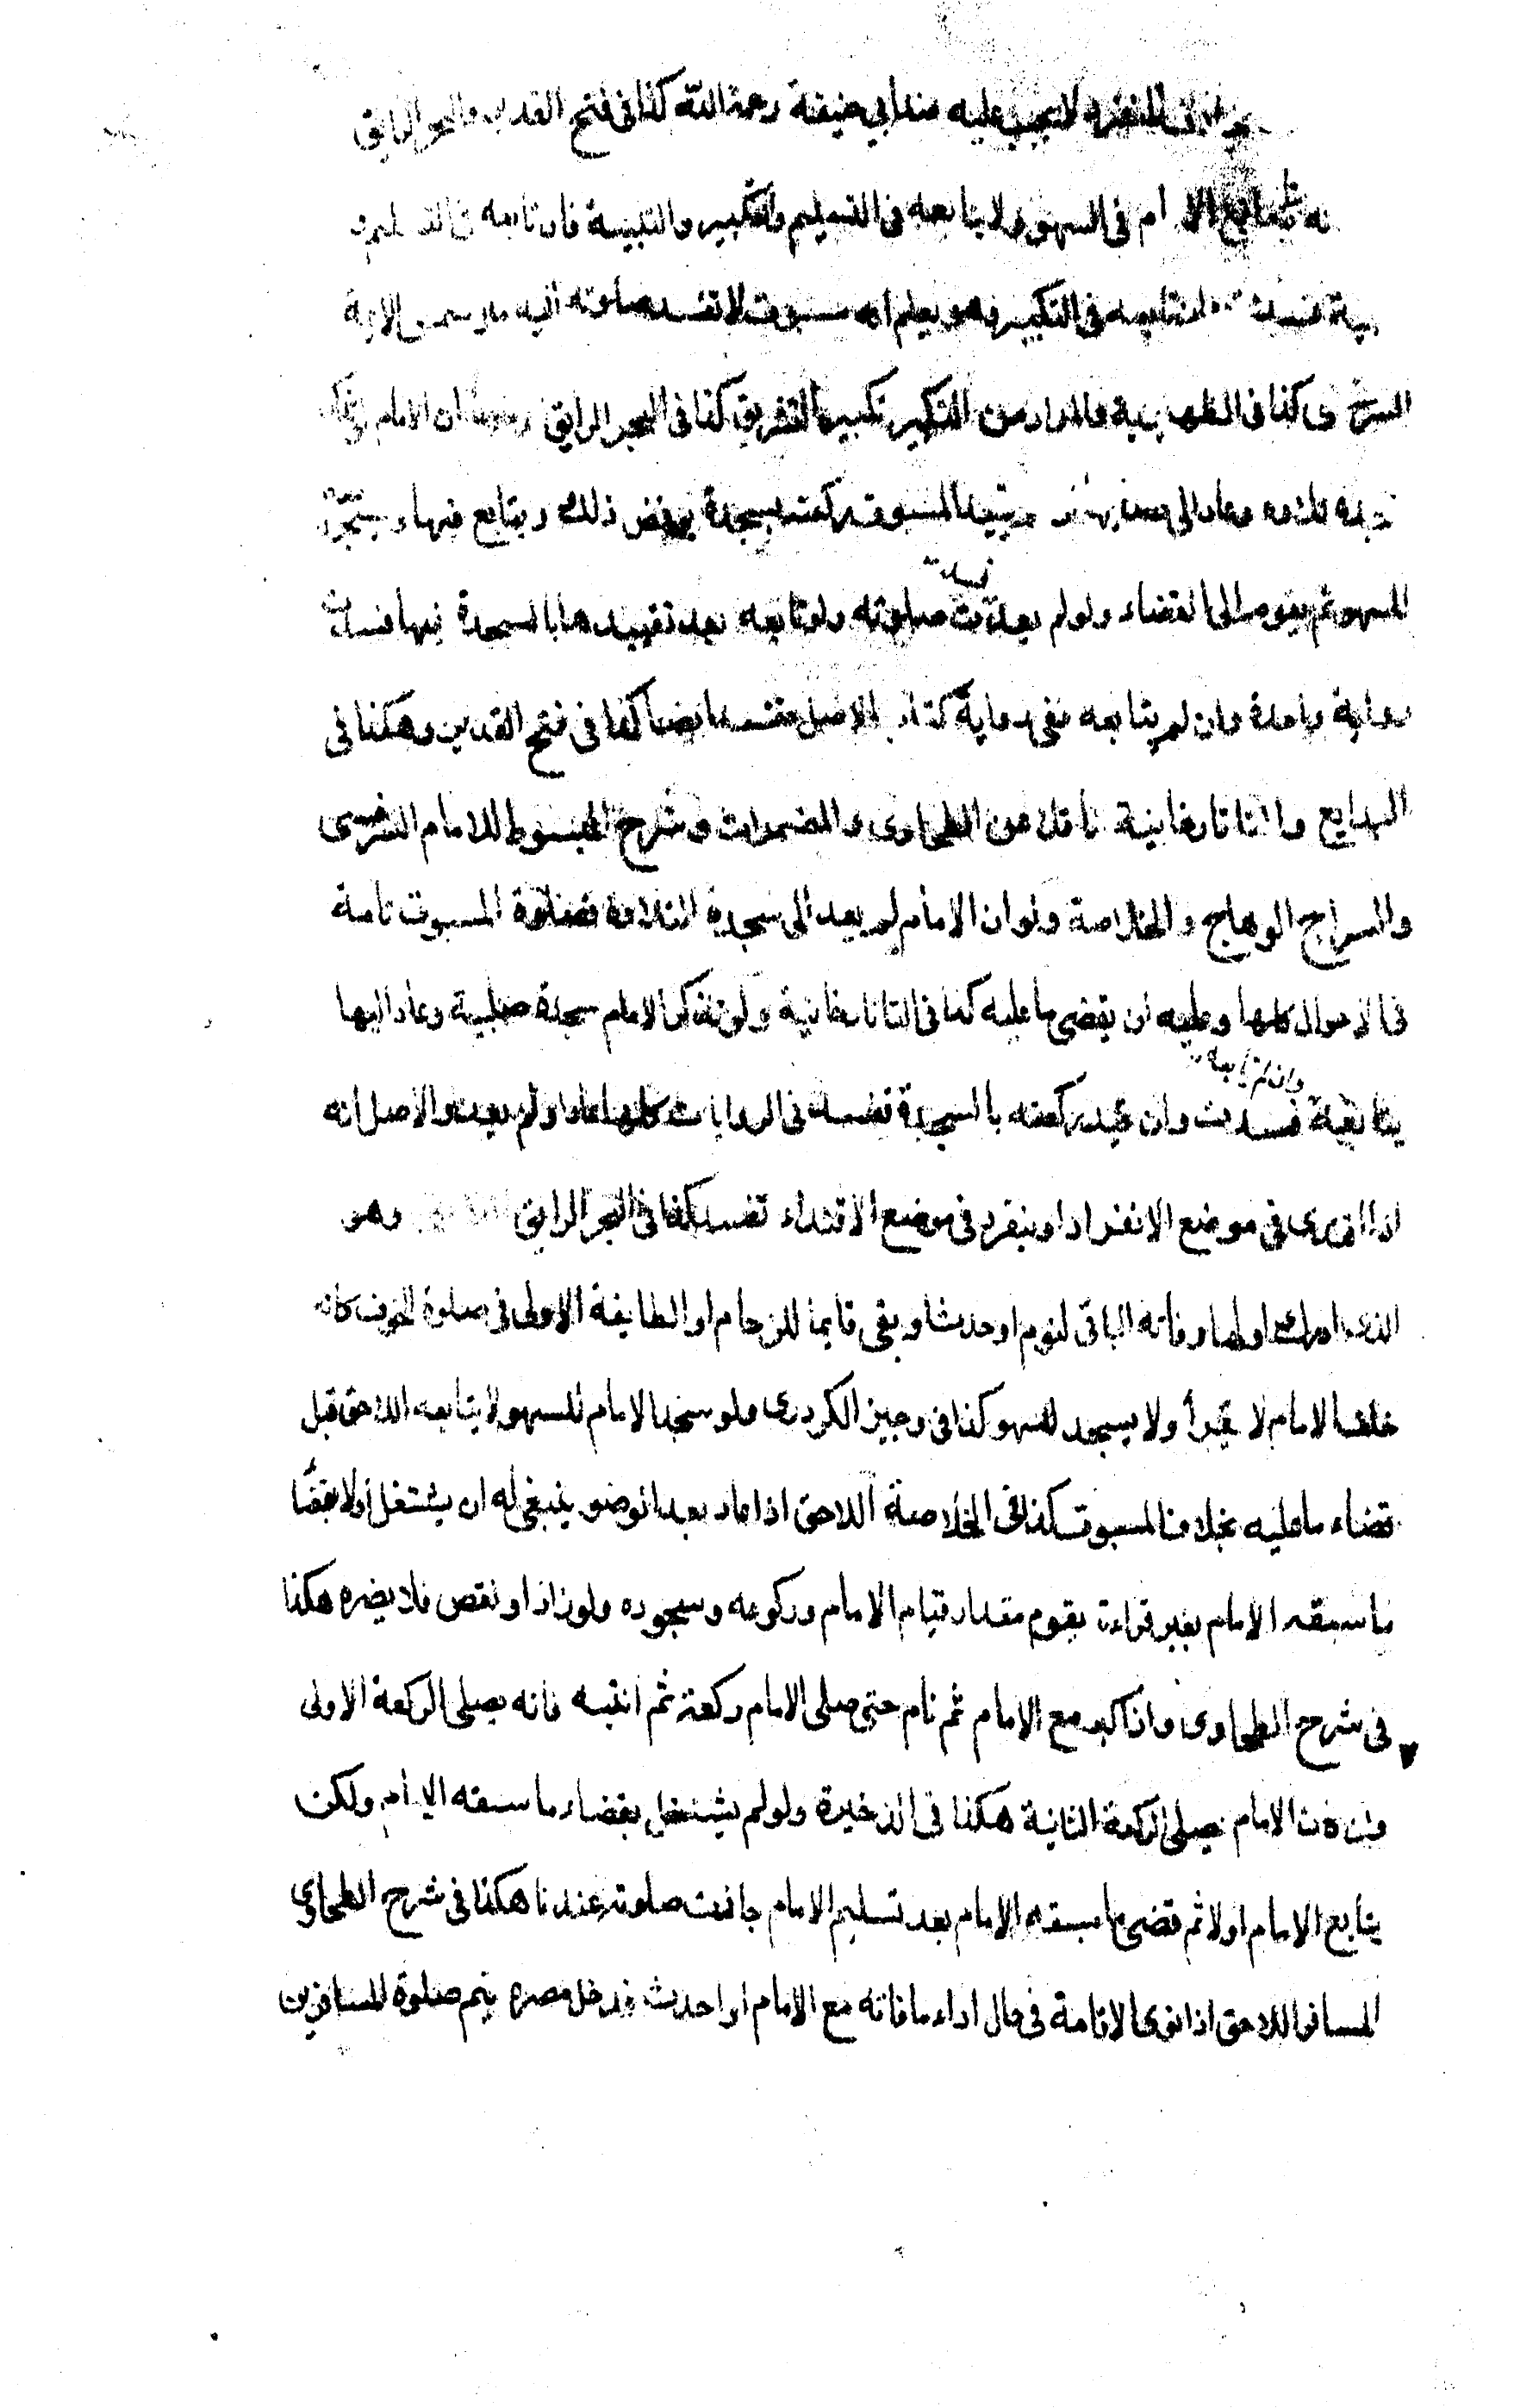 المنفرد لا يجب عليه عند ابي حنيفة رحمة الله كذا فى فتح القدير والبحر الرايق
يتابع الامام فى السهو ولا يتابعه فى التسليم والتكبير والتلبية فان تابعه فى التسليم
فسدت تابعه فى التكبير وهو يعلم انه مسبوق لا تفسد صلوته اليه مال شمس الايمة
السرخسى كذا فى الظهيرية والمراد من التكبير تكبير التشريق كذا فى البحر الرايق ان الامام
سجدة تلاوة وعاد الى يقيد المسبوق ركعته بسجدة يرفض ذلك ويتابع فيها ويسجد
للسهو ثم يقوم الى القضاء ولو لم يعد فسدت صلوته ولو تابعه بعد تقييدها بالسجدة فيها فسدت
رواية واحدة وان لم يتابعه ففى رواية كتاب الاصل تفسد ايضا كذا فى فتح القدير وهكذا فى
البدايع والتاتارخانية ناقلا عن الطحاوى والمضمرات وشرح المبسوط للامام السرخسى
والسراج الوهاج والخلاصة ولو ان الامام لم يعد الى سجدة التلاوة فصلوة المسبوق تامة
فى الاحوال كلها وعليه ان يقضى ما عليه كذا فى التاتارخانية ولو تذكر الامام سجدة صلبية وعاد اليها
يتابعه وان لم يتابعه فسدت وان قيد ركعته بالسجدة تفسد فى الروايات كلها عاد او لم يعد والاصل انه
اذا اقتدى فى موضع الانفراد او ينفرد فى موضع الاقتداء تفسد كذا فى البحر الرايق وهو
الذى ادرك اولها وفاته الباقى لنوم او حدث او بقى قايما للزحام او الطايفة الاولى فى صلوة الخوف كانه
خلف الامام لا يقرأ ولا يسجد للسهو كذا فى وجيز الكردرى ولو سجد الامام للسهو لا يتابعه اللاحق قبل
قضاء ما عليه بخلاف المسبوق كذا فى الخلاصة اللاحق اذا عاد بعد الوضو ينبغى له ان يشتغل اولا بقضا
ما سبقه الامام بغير قراءة يقوم مقدار قيام الامام وركوعه وسجوده ولو زاد او نقص فلا يضره هكذا
فى شرح الطحاوى واذا كبر مع الامام ثم نام حتى صلى الامام ركعة ثم انتبه فانه يصلى الركعة الاولى
وان كان الامام يصلى الركعة الثانية هكذا فى الذخيرة ولو لم يشتغل بقضاء ما سبقه الامام ولكن
يتابع الامام اولا ثم قضى ما سبقه الامام بعد تسليم الامام جازت صلوته عندنا هكذا فى شرح الطحاوى
المسافر اللاحق اذا نوى الاقامة فى حال اداء ما فاته مع الامام او احدث فدخل مصره يتم صلوة المسافرين